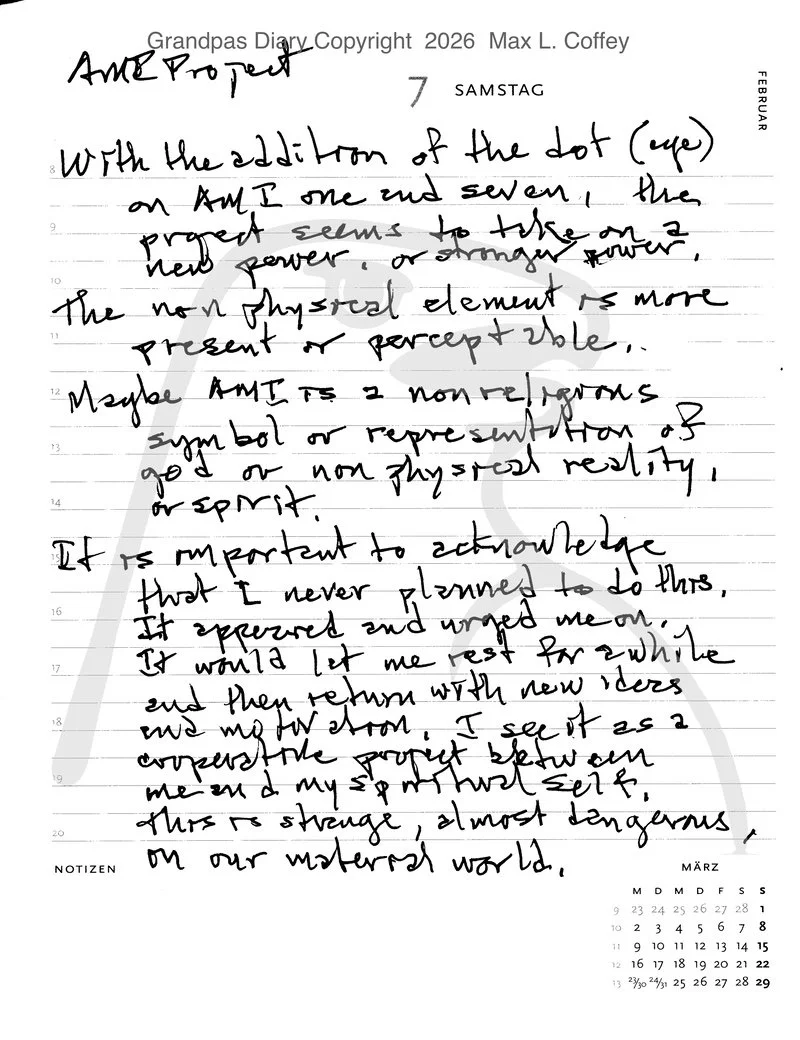 Grandpas Diary Copyright 2026 Max L. Coffey
AMI Project
7 SAMSTAG
FEBRUAR
With the addition of the dot (eye)
on AMI one and seven, the
project seems to take on a
new power, or stronger power.
The non physical element is more
present or perceptable.
Maybe AMI is a nonreligious
symbol or representation of
god or non physical reality,
or spirit.
It is important to acknowledge
that I never planned to do this.
It appeared and urged me on.
It would let me rest for awhile
and then return with new ideas
and motivation. I see it as a
cooperative project between
me and my spiritual self.
This is strange, almost dangerous,
in our material world.
8
9
10
11
12
13
14
15
16
17
18
19
20
NOTIZEN
MÄRZ
M D M D F S S
9 23 24 25 26 27 28 1
10 2 3 4 5 6 7 8
11 9 10 11 12 13 14 15
12 16 17 18 19 20 21 22
13 23/30 24/31 25 26 27 28 29